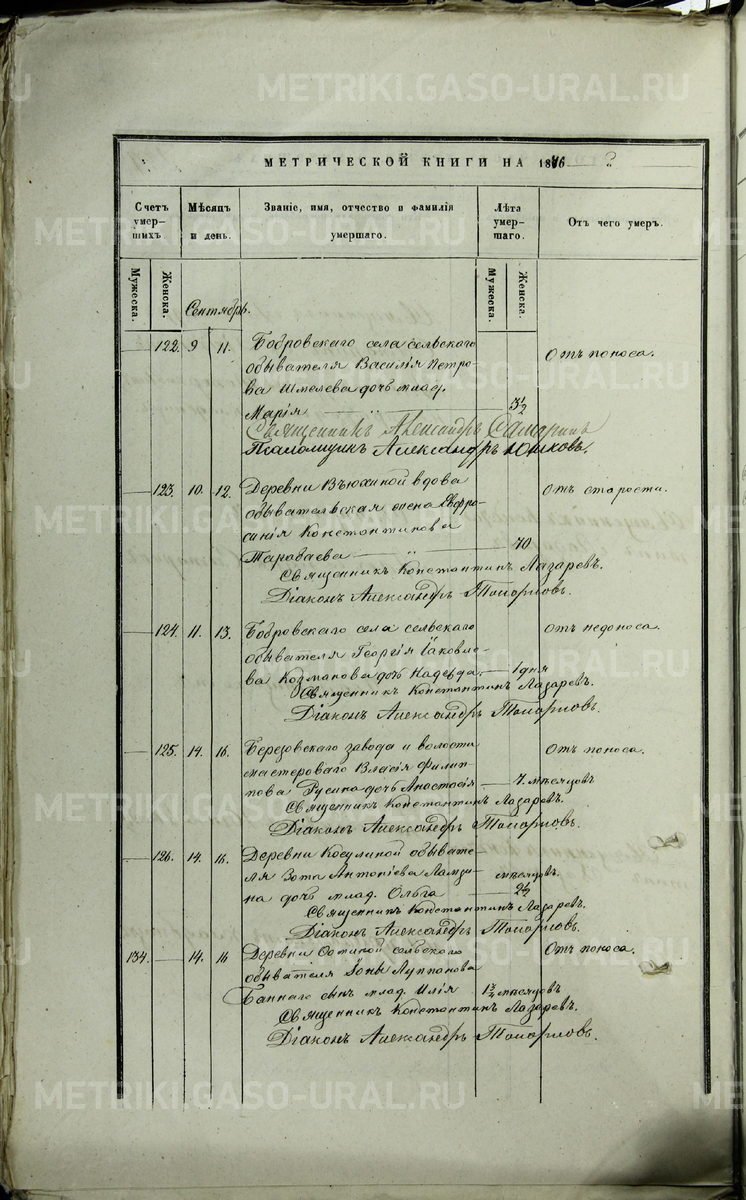 METRIKI.GASO-URAL.RU
МЕТРИЧЕСКОЙ КНИГИ НА 1876
Счетъ умерших. Мѣсяцъ и день. Званіе, имя, отчество и фамилія умершаго. Лѣта умершаго. Отъ чего умеръ.
Мужеска. Женска. Мужеска. Женска.
Сентябрь.
122. 9 11. Бобровскаго села сельскаго
обывателя Василія Петро- Отъ поноса.
ва Шмелева дочь млад.
Марія 3½
Священникъ Александръ Самаринъ
Псаломщик Александръ Юшковъ.
123. 10. 12. Деревни Вьюхиной вдова Отъ старости.
обывательская жена Евфро-
синія Константинова
Тараваева 70
Священникъ Константинъ Лазаревъ.
Діаконъ Александръ
124. 11. 13. Бобровскаго села сельскаго Отъ недоноса.
обывателя Георгія Іаковле-
ва дочь Надежда. 1 дня
Священникъ Константинъ Лазаревъ.
Діаконъ Александръ
125. 14. 16. Березовскаго завода и волости Отъ поноса.
мастероваго Власія Филип-
пова Русина дочь Анастасія 7. мѣсяцовъ
Священникъ Константинъ Лазаревъ.
Діаконъ Александръ
126. 14. 16. Деревни Косулиной обывате-
ля Зота Антоніева мѣсяцовъ.
на дочь млад. Ольга 2½
Священникъ Константинъ Лазаревъ.
Діаконъ Александръ
134. 14. 16 Деревни сельскаго Отъ поноса.
обывателя Іоны Луппонова
Баннаго сынъ млад. Илія 1¾ мѣсяцовъ
Священникъ Константинъ Лазаревъ.
Діаконъ Александръ
METRIKI.GASO-URAL.RU